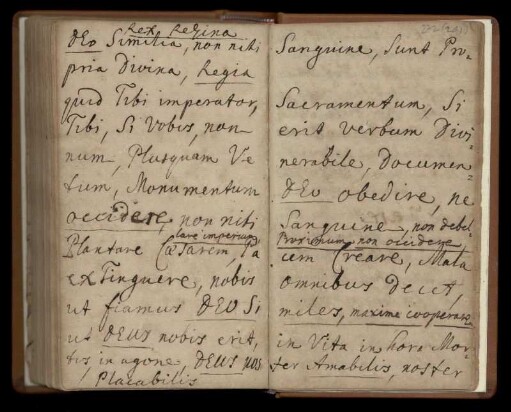 Rex Regina
DEO Similia, non nisi
pria Divina, Regia
quid Tibi imperator,
Tibi, Si Vobis, non
num, Plusquam Ve
tum, Monumentum
occidere, non nisi
lave imperium
Plantare Cæsarem, Pa
exTinguere, nobis
ut fiamus DEO Si
ut DEUS nobis erit,
tis in agone, DEUS nos
Placabilis
Sanguine, Sunt Pro-
Sacramentum, Si
erit verbum Divi-
nerabile, Documen-
DEO obedire, ne
Sanguine, non debet
Proximum non occidere,
cem Creare, Mala
omnibus Decet,
miles, maxime cooperato
in Vita in hora Mor-
ter Amabilis, noster